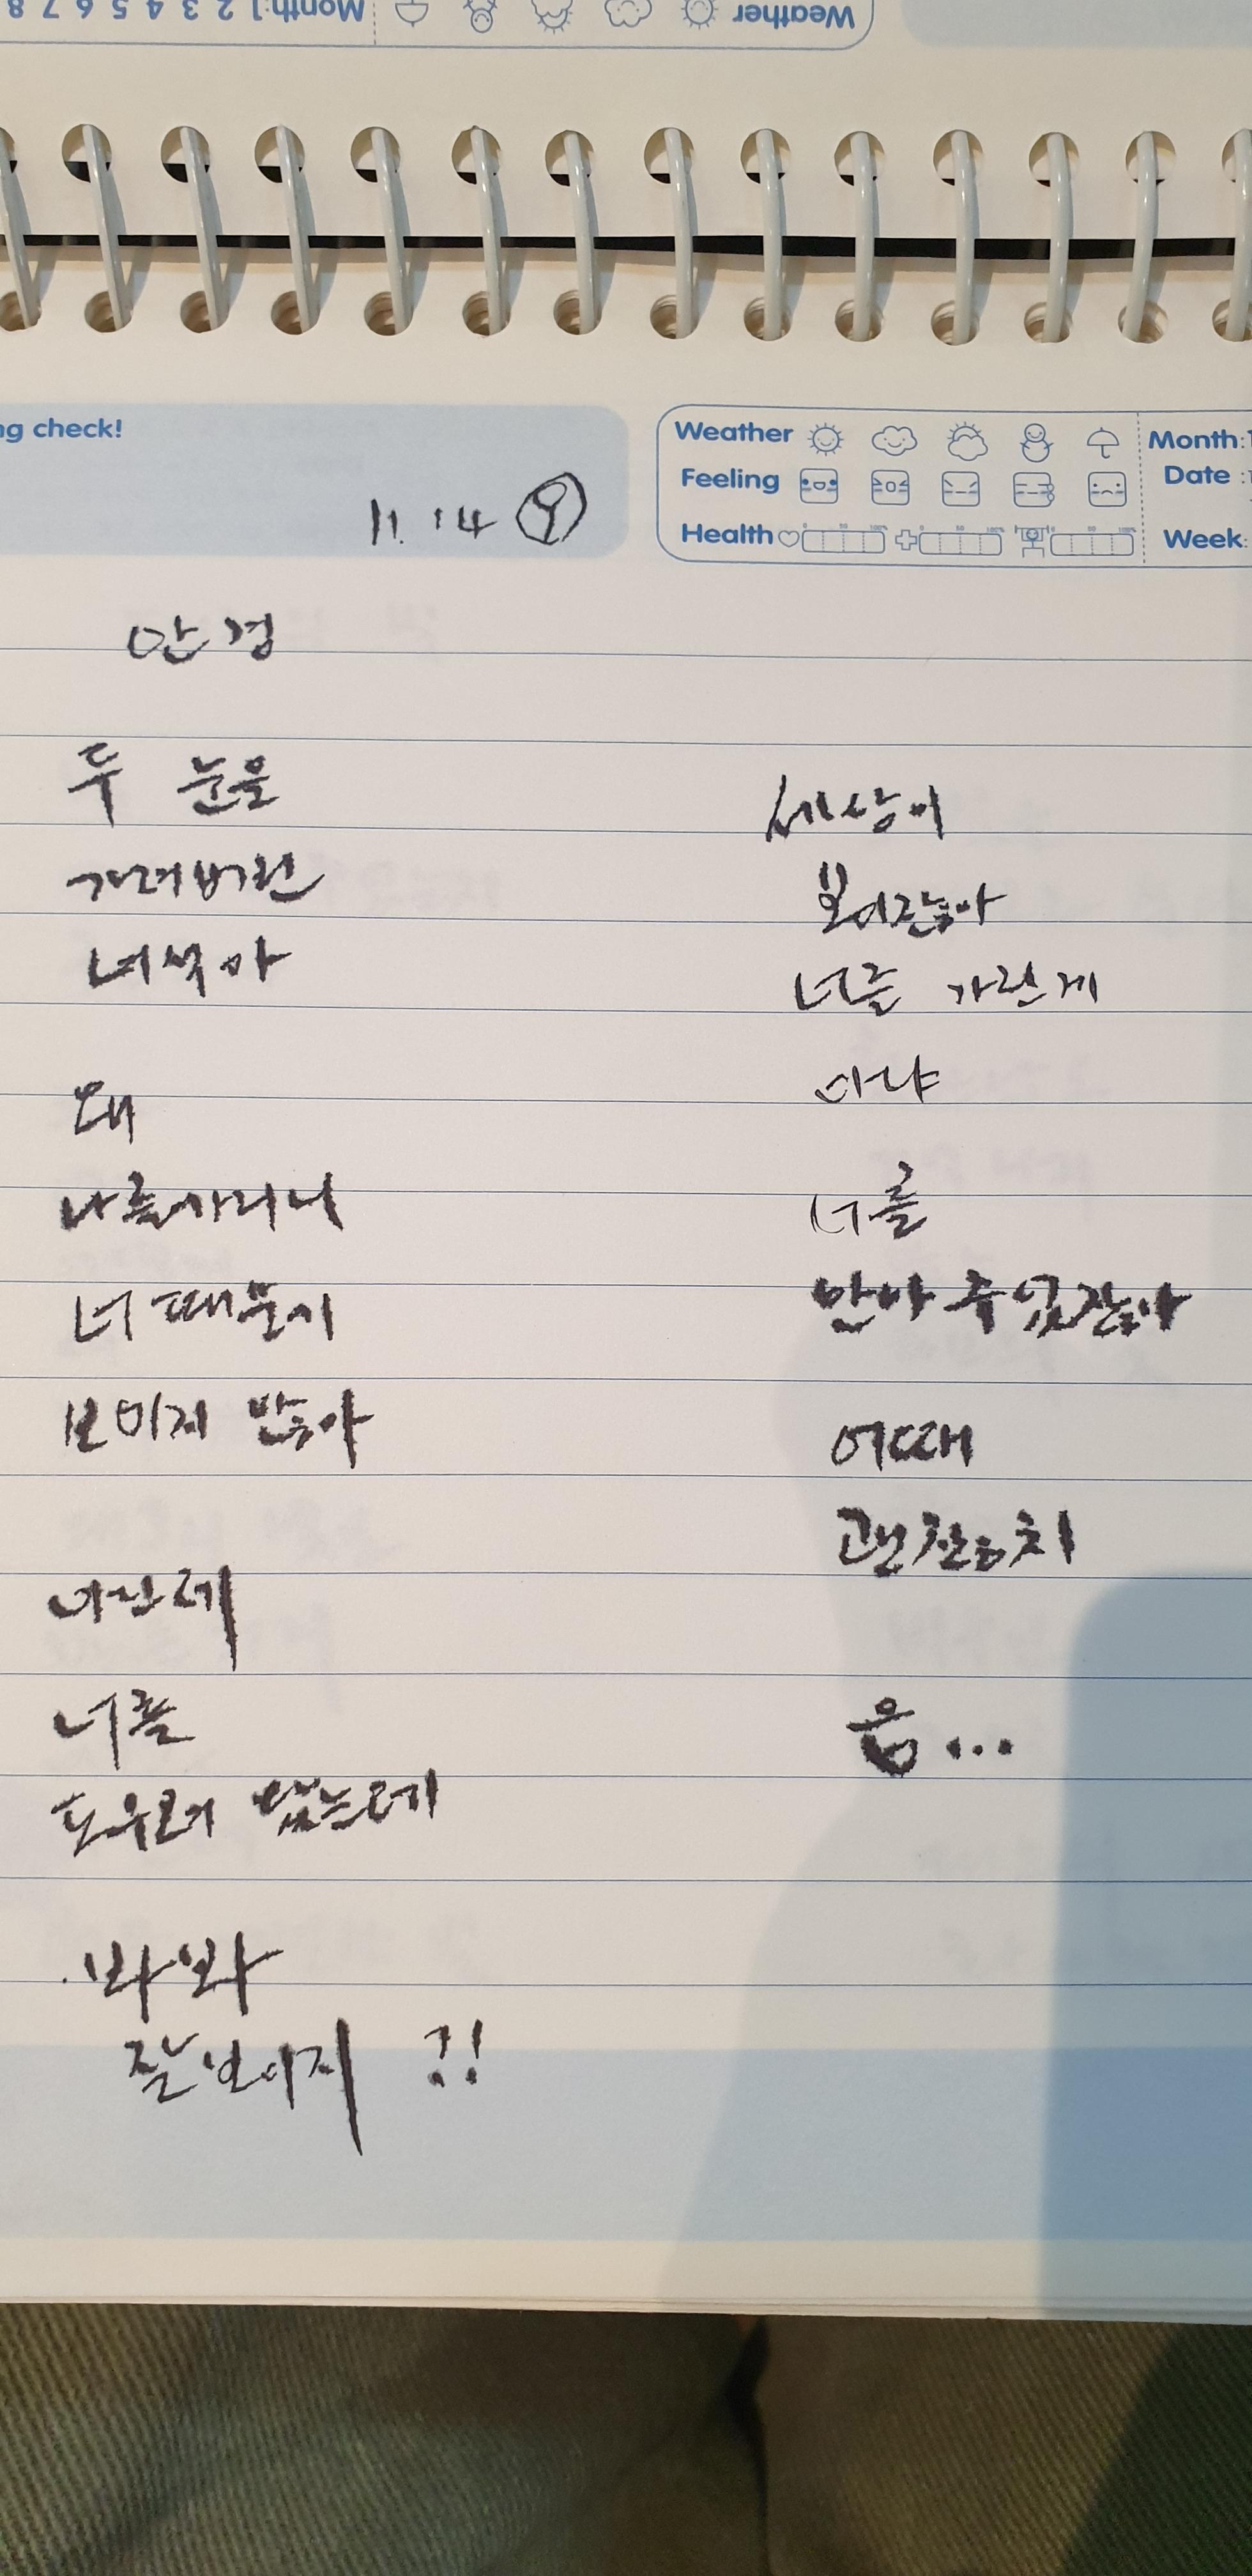 Month:1 2 3 4 5 6 7 8
Weather
ng check!
11. 14
Weather
Feeling
Health
Month:1
Date :1
Week:
안경
두 눈을
가려버린
녀석아
왜
나를가리니
너 때문에
보이지 않아
나인데
너를
도우려 했는데
봐봐
잘보이지 ?!
세상이
보이잖아
너를 가린게
아냐
너를
안아 주었잖아
어때
괜찮치
음...